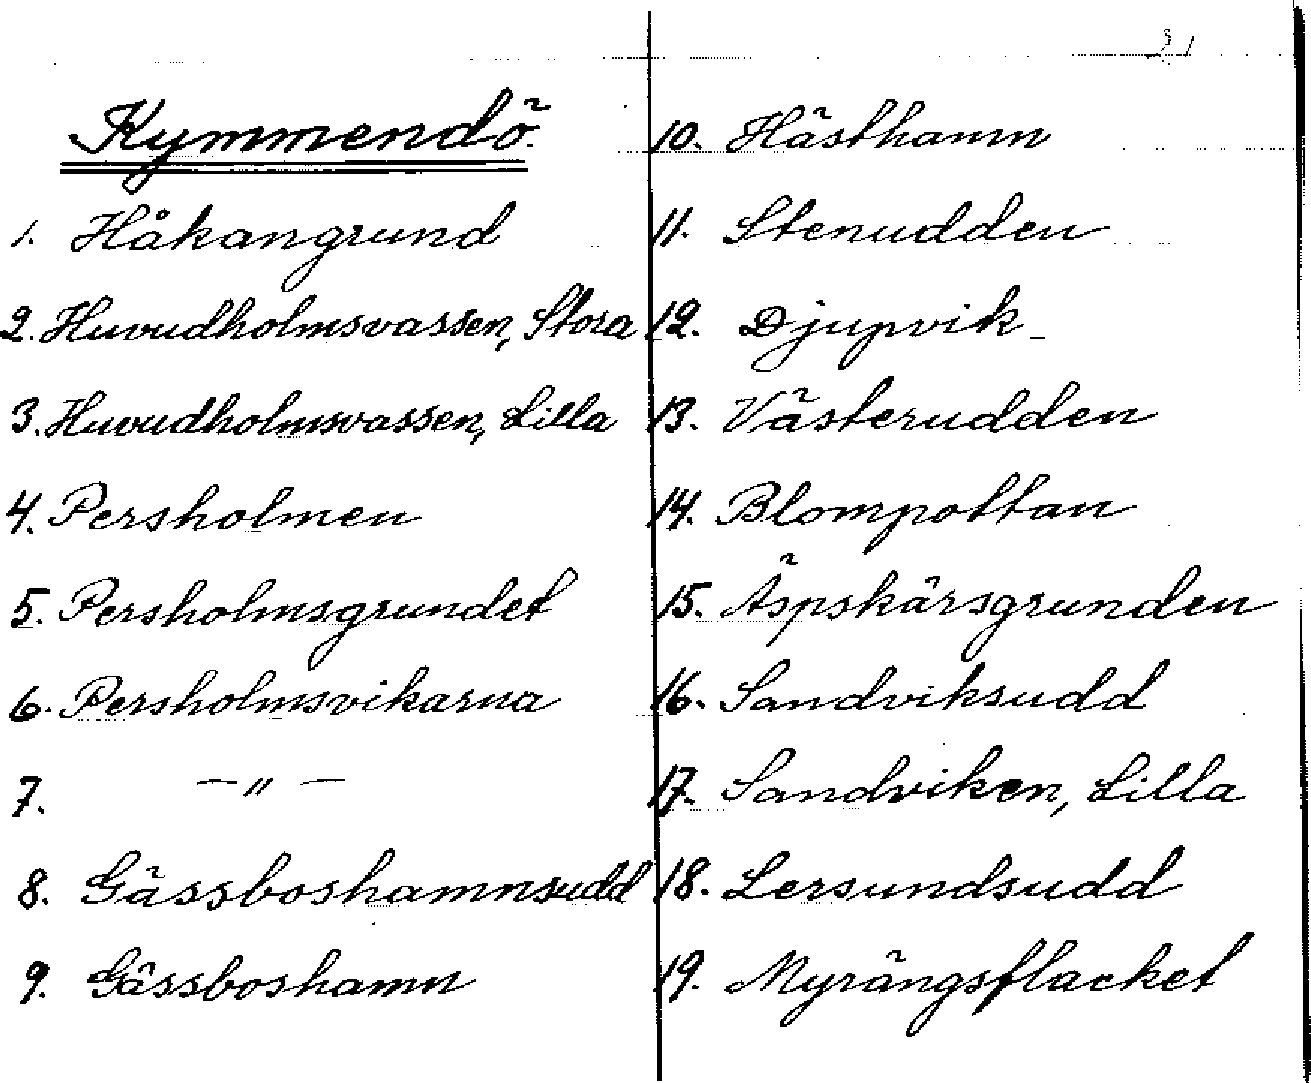 Kymmendö.
1. Håkangrund
2. Huvudholmsvassen, Stora
3. Huvudholmsvassen, Lilla
4. Persholmen
5. Persholmsgrundet
6. Persholmsvikarna
7. — " —
8. Gässboshamnsudd
9. Gässboshamn
10. Hästhamn
11. Stenudden
12. Djupvik
13. Västerudden
14. Blompottan
15. Äspskärsgrunden
16. Sandviksudd
17. Sandviken, Lilla
18. Lersundsudd
19. Myrängsflacket